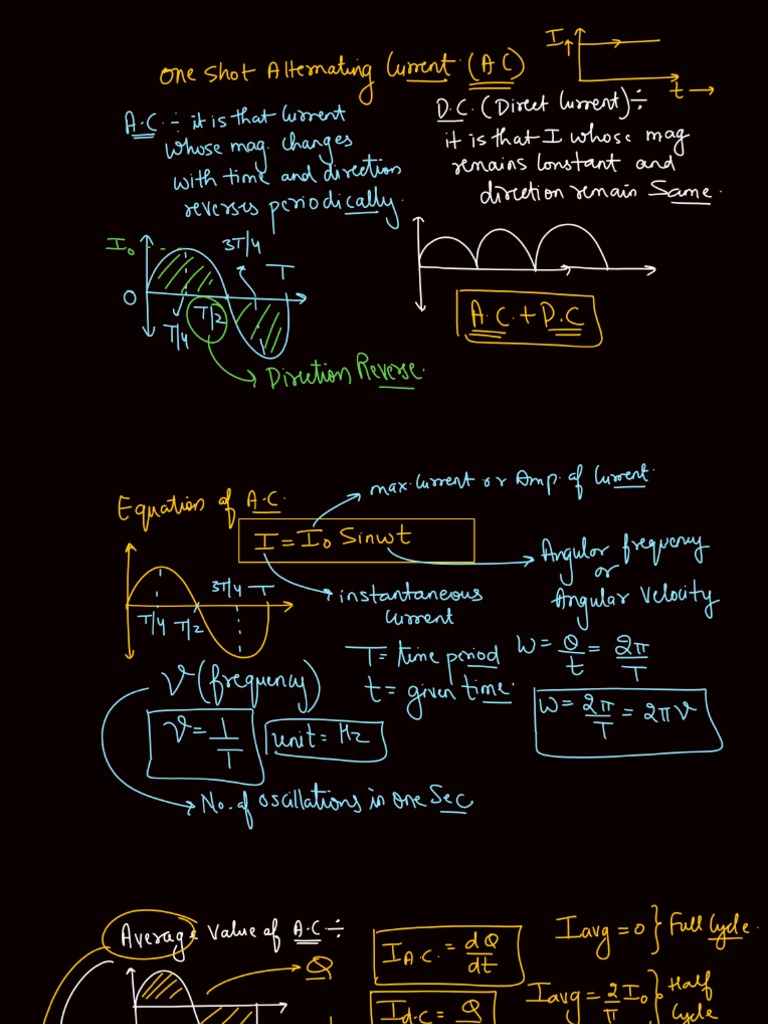 One Shot Alternating Current (AC)
I
t
A.C ÷ it is that Current
whose mag. changes
with time and direction
reverses periodically.
D.C. (Direct Current) ÷
it is that I whose mag
remains Constant and
direction remain Same.
I₀
3T/4
T
O
T/4
T/2
Direction Reverse.
A.C. + D.C
Equation of A.C.
max. Current or Amp. of Current.
I = I₀ Sinωt
Angular frequency
or
Angular Velocity
instantaneous
Current
3T/4 T
T/4 T/2
T = time period
t = given time.
ω = θ/t = 2π/T
ω = 2π/T = 2πν
ν (frequency)
ν = 1/T
unit = Hz
No. of oscillations in one Sec
Average Value of A.C ÷
Q
I A.C. = dQ/dt
I d.C = Q
Iavg = 0 } Full Cycle.
Iavg = 2/π I₀ } Half
Cycle